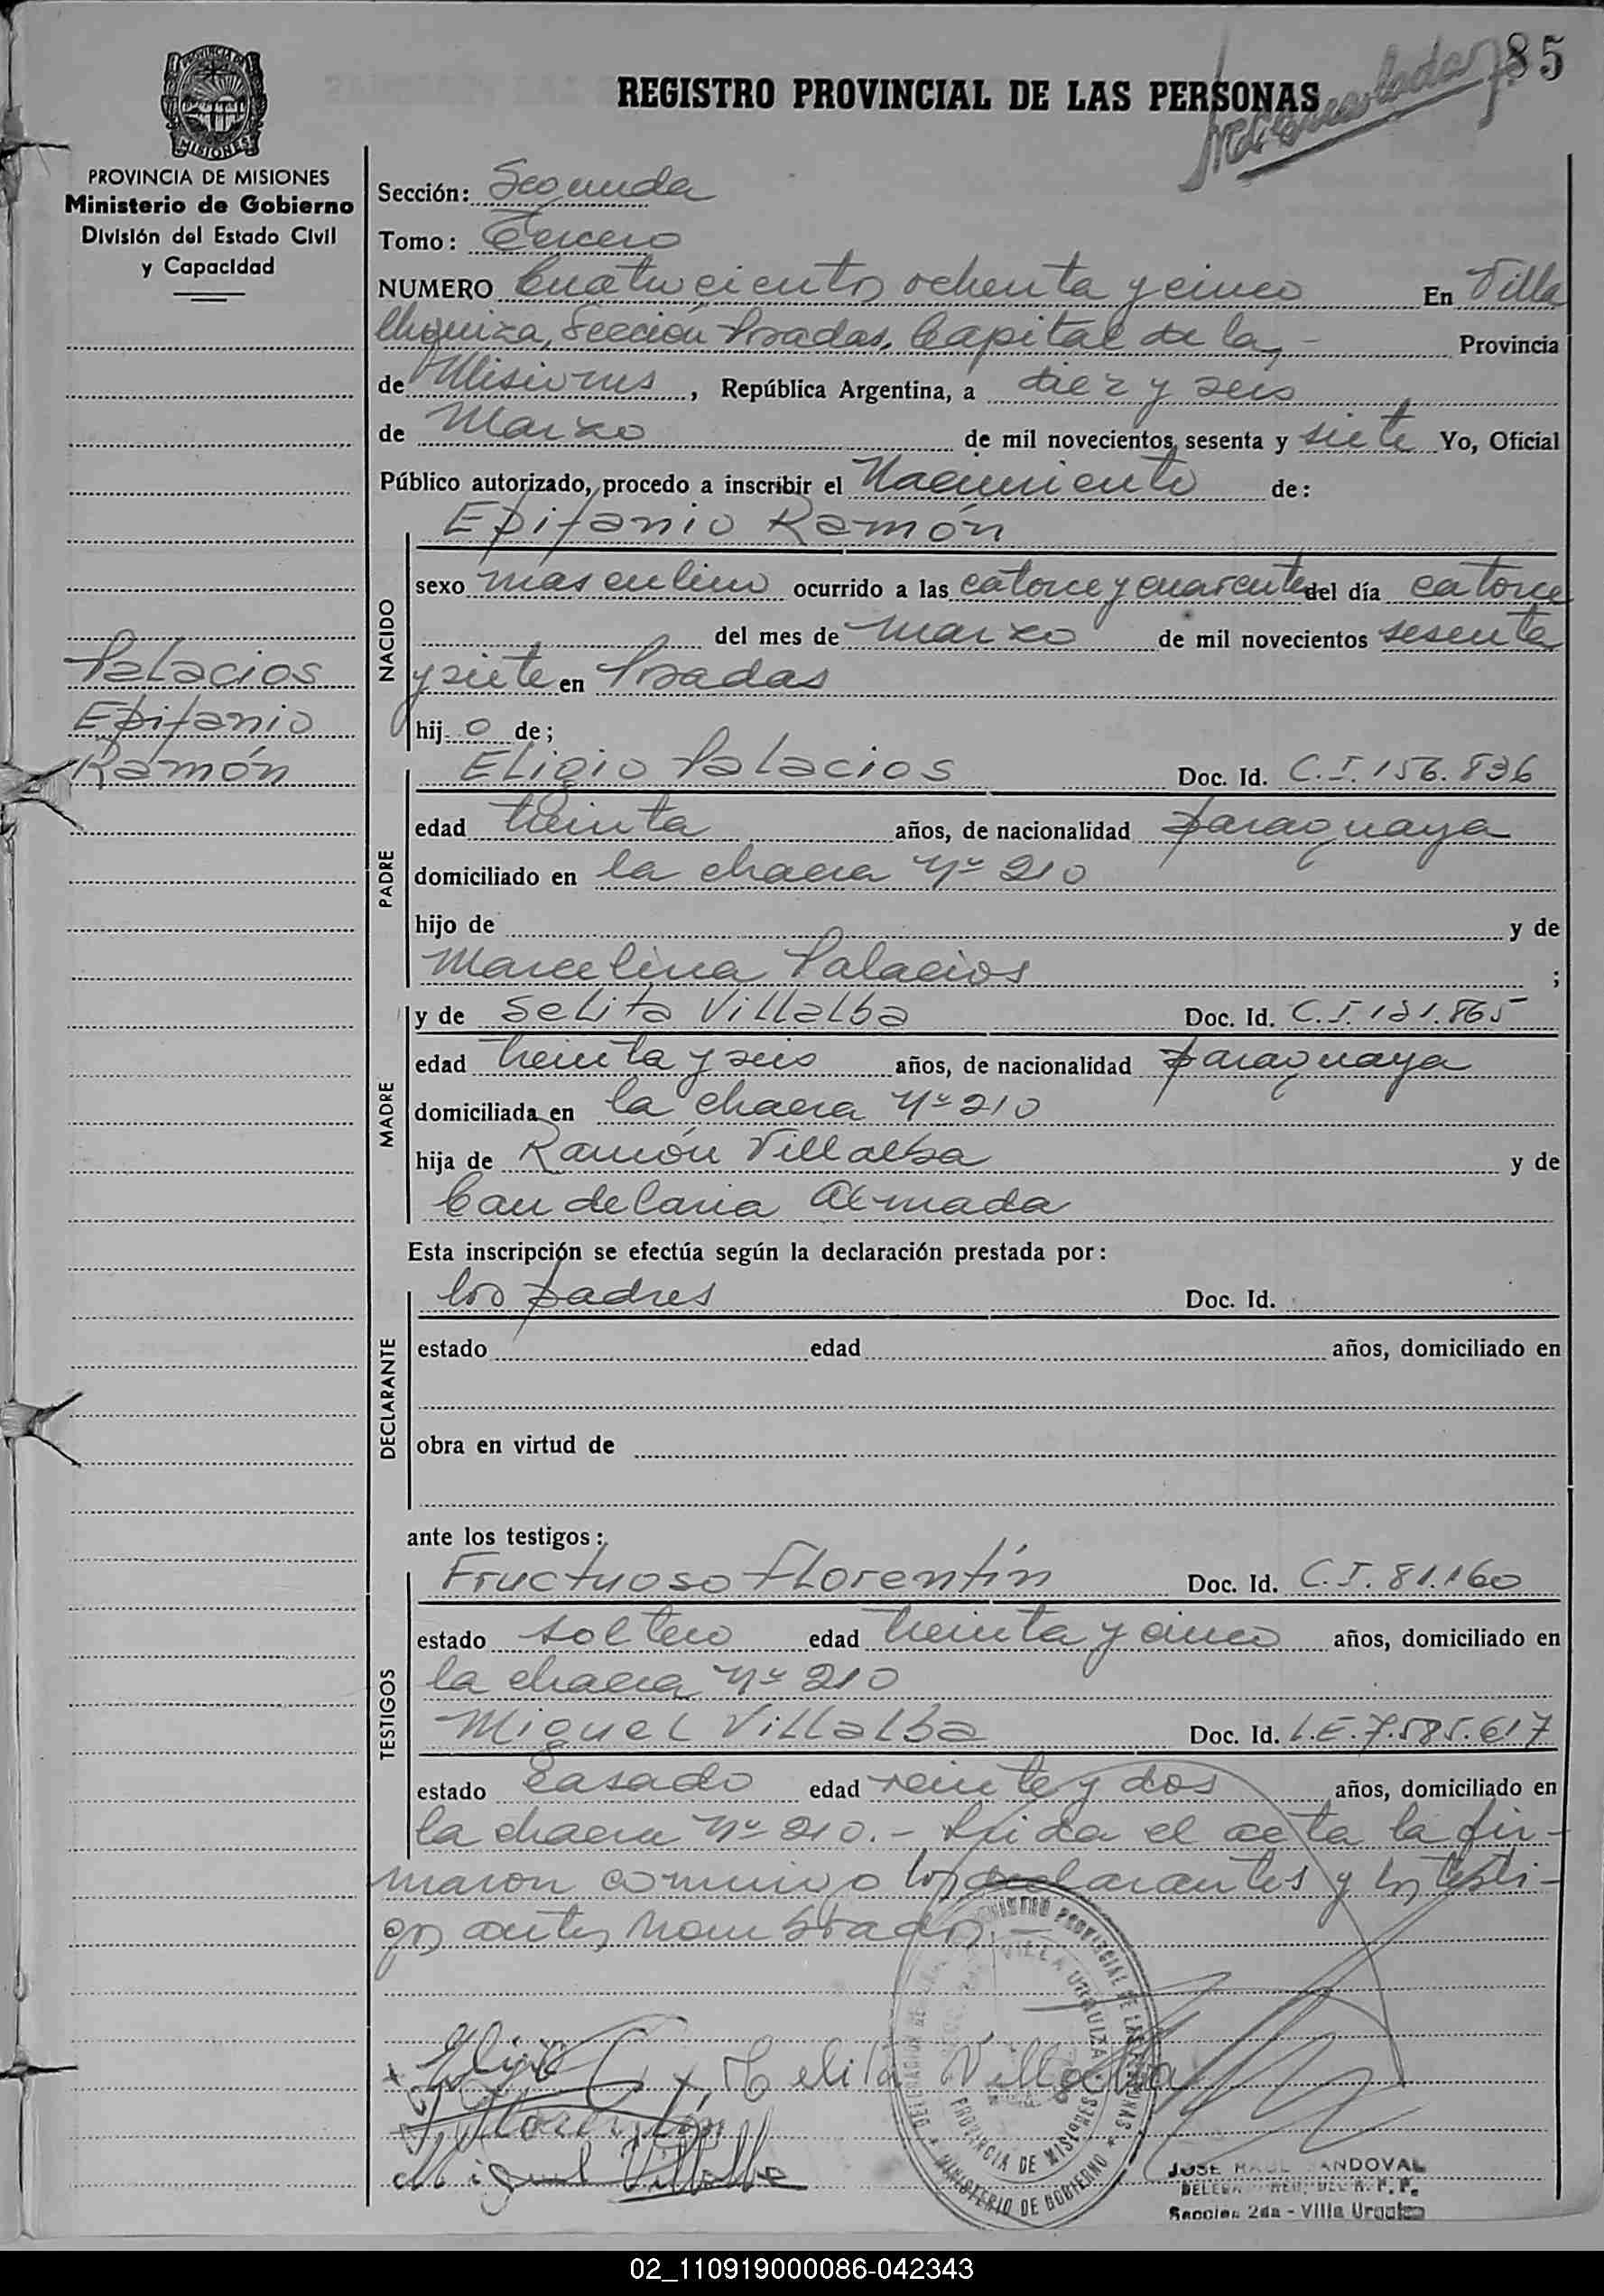 85
REGISTRO PROVINCIAL DE LAS PERSONAS
PROVINCIA DE MISIONES
Ministerio de Gobierno
División del Estado Civil
y Capacidad
Sección: Segunda
Tomo: Tercero
NUMERO Cuatrocientos ochenta y cinco En Villa
Urquiza, Sección Posadas, Capital de la, - Provincia
de Misiones, República Argentina, a diez y seis
de Marzo de mil novecientos sesenta y siete Yo, Oficial
Público autorizado, procedo a inscribir el Nacimiento de:
Epifanio Ramón
NACIDO
sexo masculino ocurrido a las catorce y cuarenta del día catorce
del mes de marzo de mil novecientos sesenta
y siete en Posadas
hijo de;
Palacios
Epifanio
Ramón
PADRE
Eligio Palacios Doc. Id. C.I. 156.836
edad treinta años, de nacionalidad paraguaya
domiciliado en la chacra Nº 210
hijo de y de
Marcelina Palacios ;
MADRE
y de Selita Villalba Doc. Id. C.I. 131.865
edad treinta y seis años, de nacionalidad paraguaya
domiciliada en la chacra Nº 210
hija de Ramón Villalba y de
Candelaria Almada
Esta inscripción se efectúa según la declaración prestada por:
DECLARANTE
los padres Doc. Id.
estado edad años, domiciliado en
obra en virtud de
ante los testigos:
TESTIGOS
Fructuoso Florentín Doc. Id. C.I. 81.160
estado soltero edad treinta y cinco años, domiciliado en
la chacra Nº 210
Miguel Villalba Doc. Id. L.E. 7.585.617
estado Casado edad veinte y dos años, domiciliado en
la chacra Nº 210.- Leida el acta la fir-
maron conmigo los declarantes y los testi-
gos antes nombrados.-
REGISTRO PROVINCIAL DE LAS PERSONAS
VILLA URQUIZA
PROVINCIA DE MISIONES
* MINISTERIO DE GOBIERNO *
Eligio
Celita Villalba
Florentín
Miguel Villalba
JOSE RAUL SANDOVAL
Seccion 2da - Villa Urquiza
02_110919000086-042343